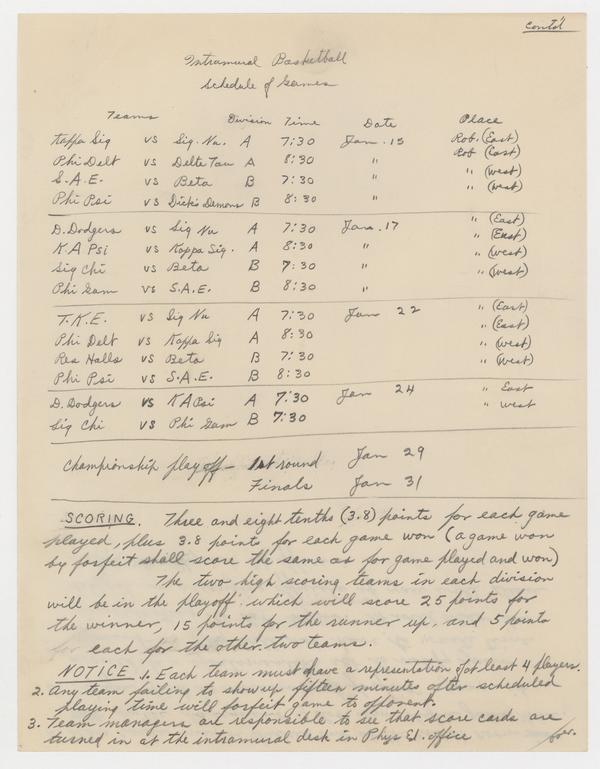 Cont'd
Intramural Basketball
Schedule of Games
Teams Division Time Date Place
Kappa Sig vs Sig. Nu. A 7:30 Jan. 15 Rob. (East)
Phi Delt vs Delta Tau A 8:30 " Rob (East)
S.A.E. vs Beta B 7:30 " " (West)
Phi Psi vs Dick's Demons B 8:30 " " (West)
D. Dodgers vs Sig Nu A 7:30 Jan. 17 " (East)
K A Psi vs Kappa Sig. A 8:30 " " (East)
Sig Chi vs Beta B 7:30 " " (West)
Phi Gam vs S.A.E. B 8:30 " " (West)
T.K.E. vs Sig Nu A 7:30 Jan 22 " (East)
Phi Delt vs Kappa Sig A 8:30 " (East)
Res Halls vs Beta B 7:30 " (West)
Phi Psi vs S.A.E. B 8:30 " (West)
D. Dodgers vs K A Psi A 7:30 Jan 24 " East
Sig Chi vs Phi Gam B 7:30 " West
Championship playoff - 1st round Jan 29
Finals Jan 31
SCORING. Three and eight tenths (3.8) points for each game
played, plus 3.8 points for each game won (a game won
by forfeit shall score the same as for game played and won)
The two high scoring teams in each division
will be in the playoff which will score 25 points for
the winner, 15 points for the runner up, and 5 points
for each for the other two teams.
NOTICE 1. Each team must have a representation of at least 4 players.
2. Any team failing to show up fifteen minutes after scheduled
playing time will forfeit game to opponent.
3. Team managers are responsible to see that score cards are
turned in at the intramural desk in Phys Ed. office